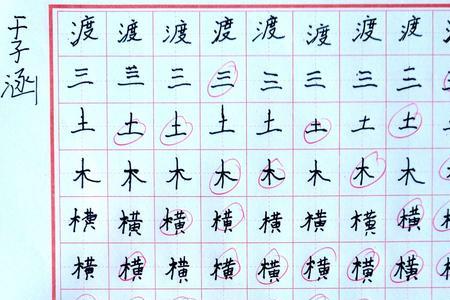 于子涵
渡渡渡渡渡渡渡渡
三三三三三三三三
土土土土土土土土
木木木木木木木木
横横横横横横横横
横横横横横横横横